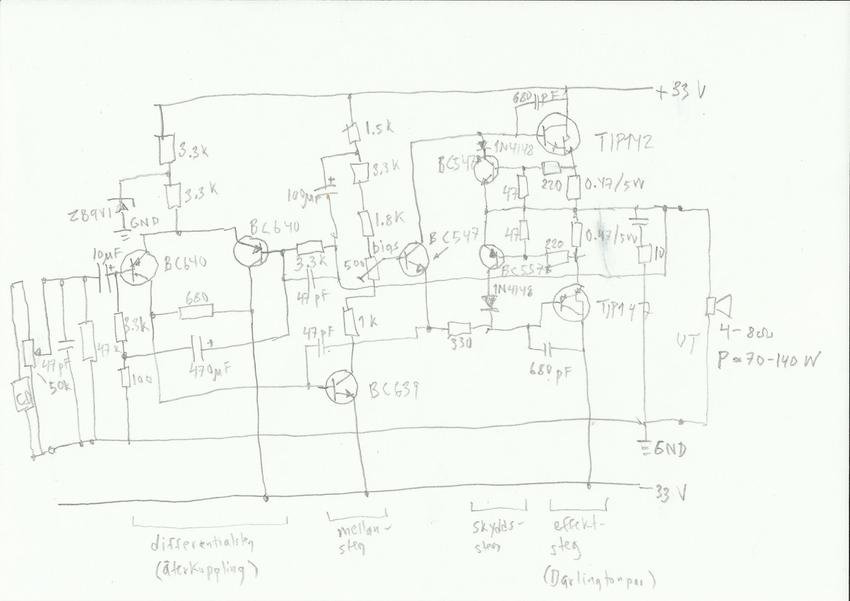 +33 V
680 pF
1.5k
TIP142
3.3k
1N4148
BC547
3.3k
220
0.47/5W
100µF
3.3k
47
ZB9V1
GND
1.8k
BC640
bias
BC547
47
220
0.47/5W
10µF
BC640
3.3k
500
10
47 pF
BC557B
1N4148
680
TIP147
3.3k
47 pF
1k
4-8Ω
47k
330
UT
P≈70-140 W
47 pF
470µF
50k
100
680 pF
CD
BC639
GND
-33 V
differentialsteg
(återkoppling)
mellan-
steg
skydds-
steg
effekt-
steg
(Darlingtonpar)